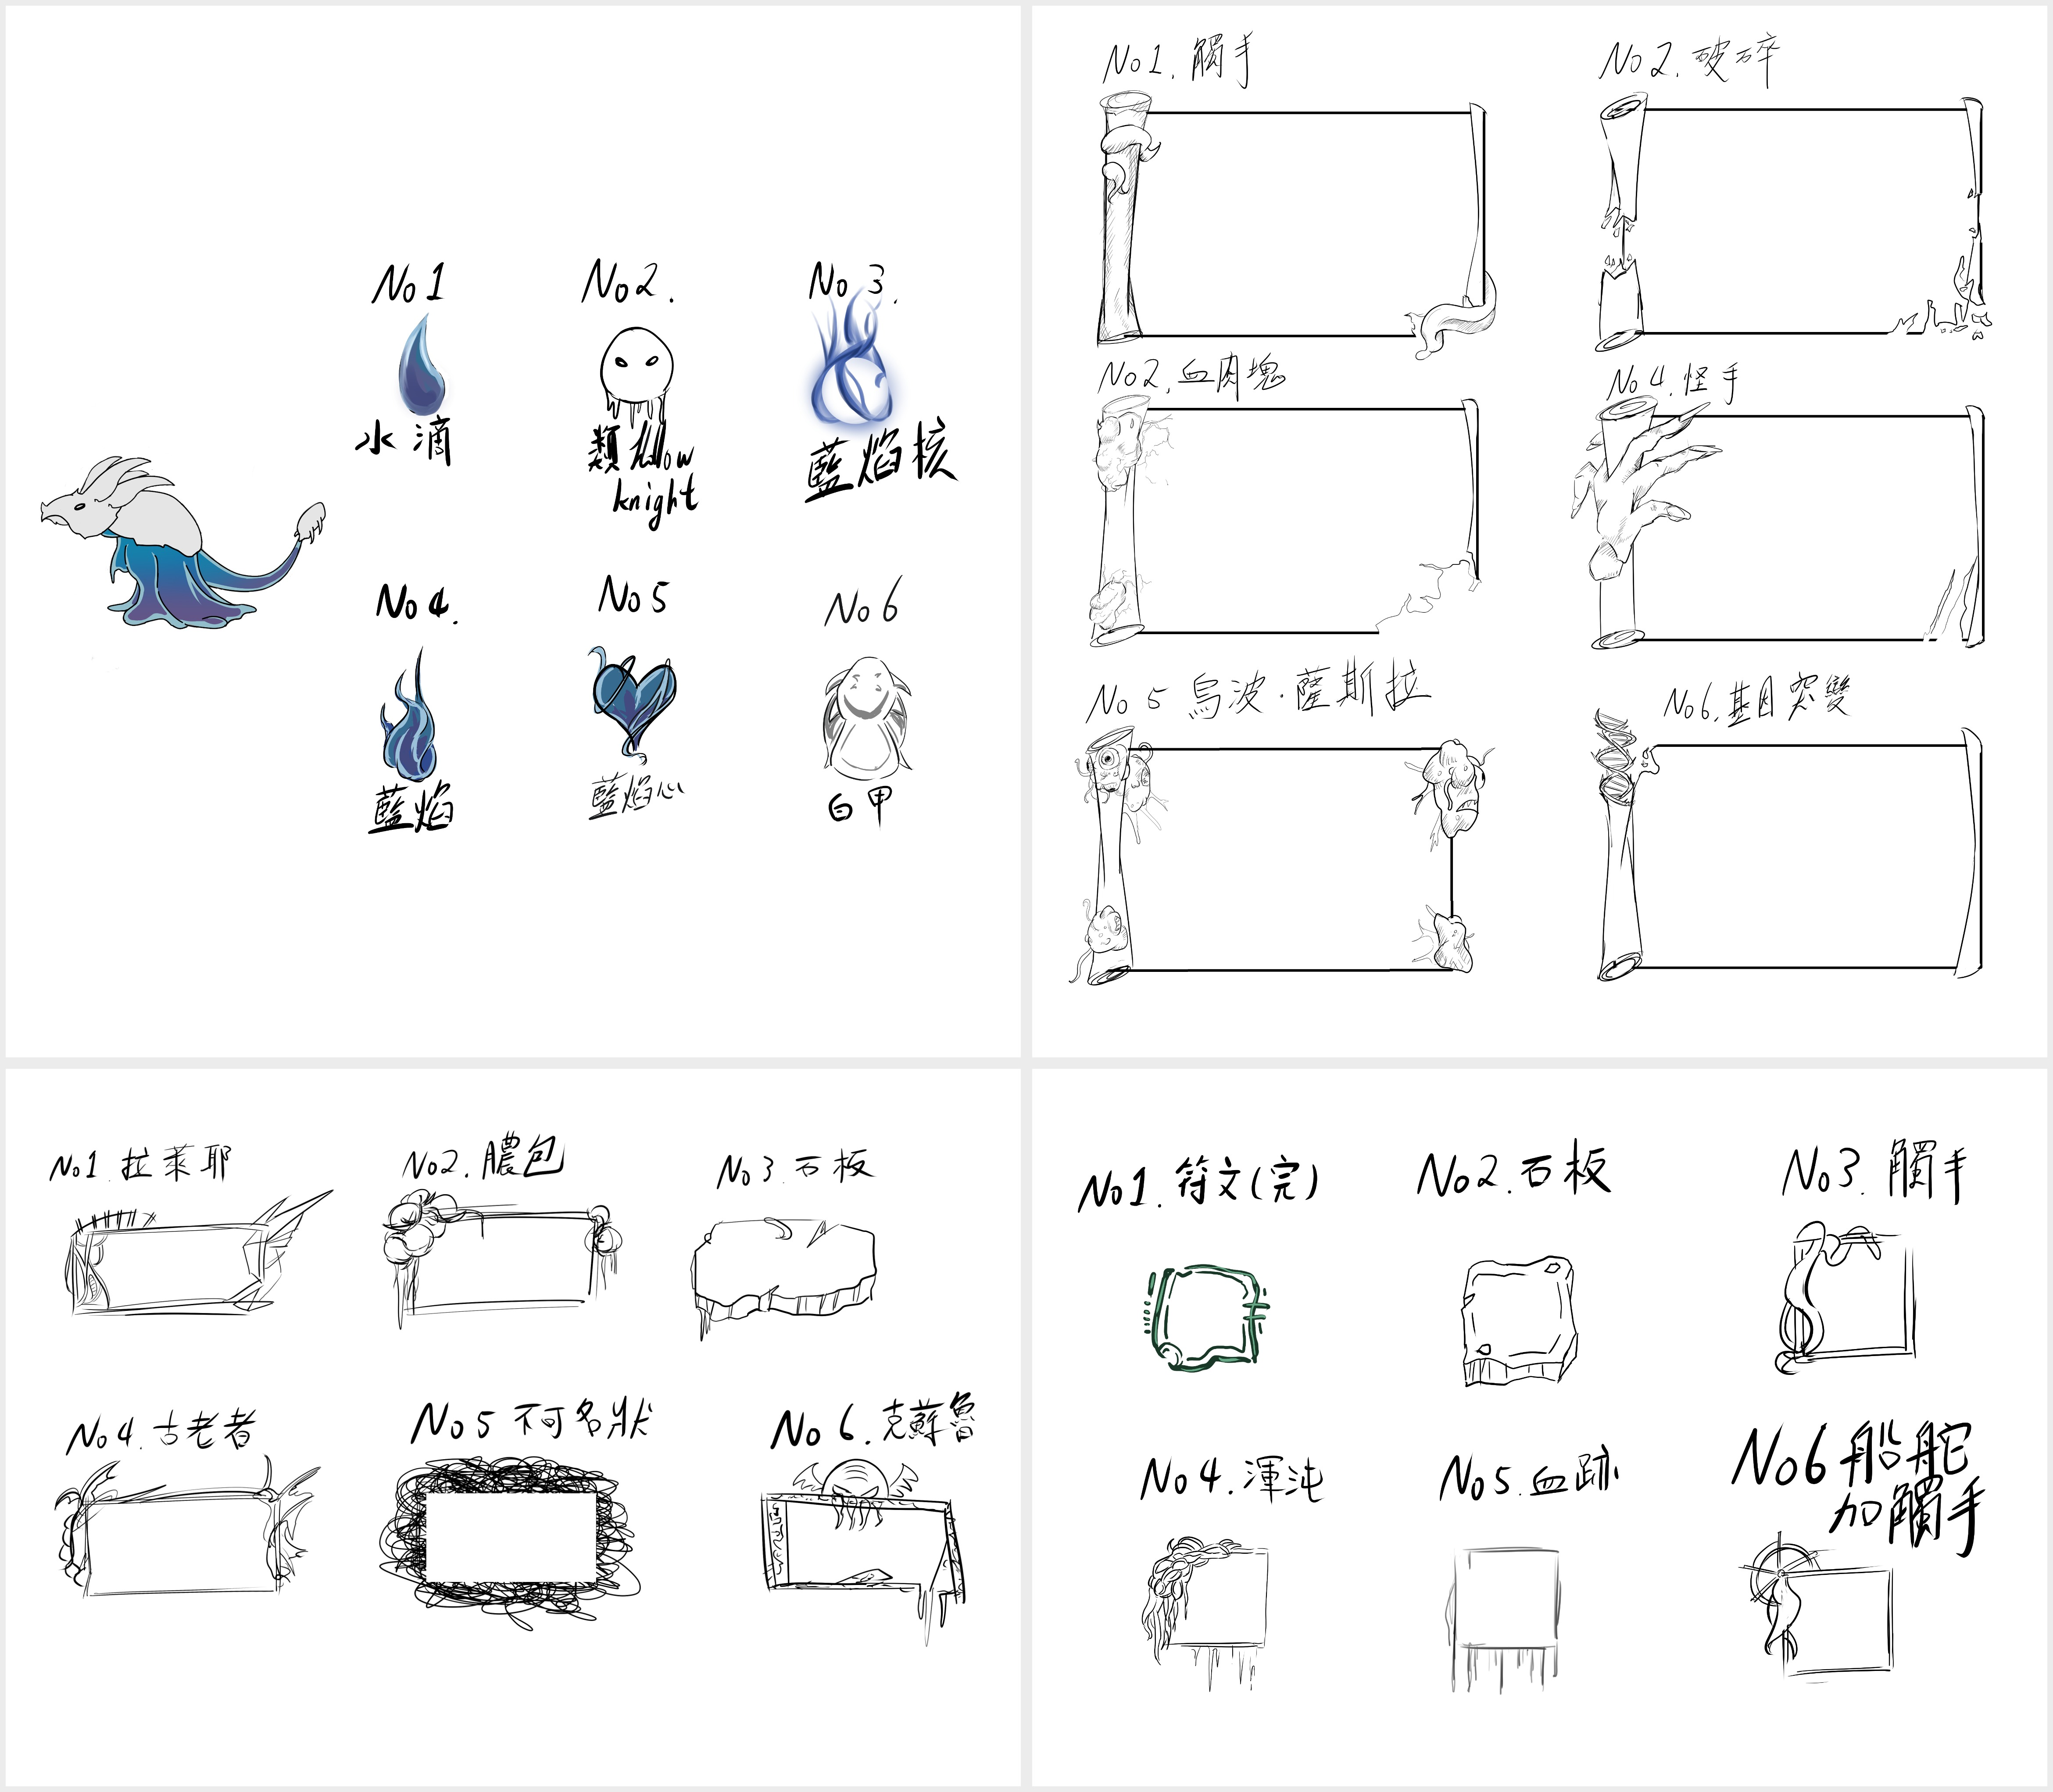 No1
No2.
No3.
水滴
類Hollow
knight
藍焰核
No4.
No5
No6
藍焰
藍焰心
白甲
No1.觸手
No2.破碎
No2.血肉塊
No4.怪手
No5烏波·薩斯拉
No6.基因突變
No1.拉萊耶
No2.膿包
No3.石板
No4.古老者
No5不可名狀
No6.克蘇魯
No1.符文(完)
No2.石板
No3.觸手
No4.渾沌
No5.血跡
No6船舵
加觸手